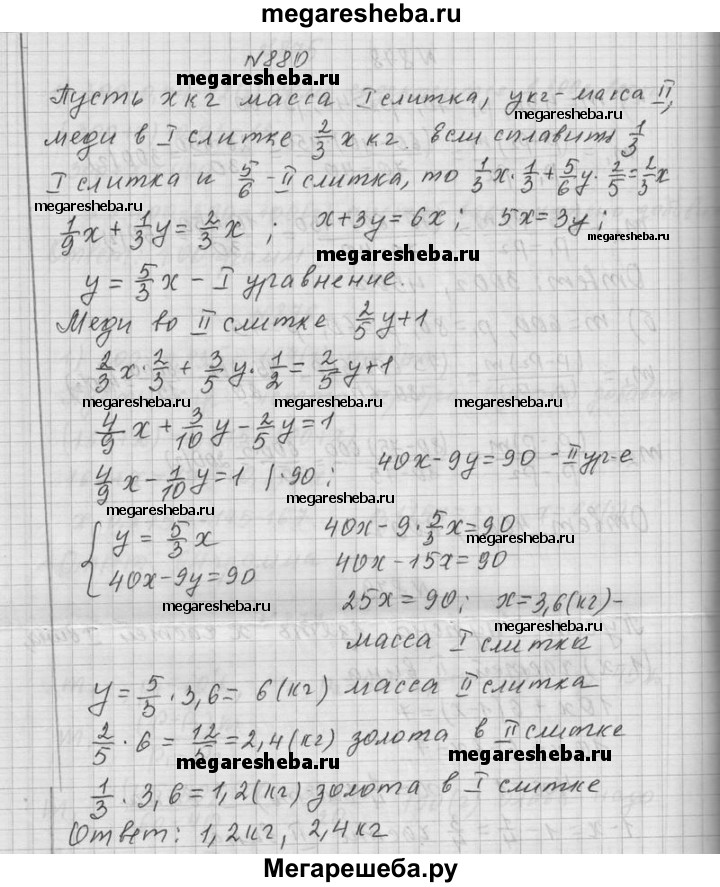 megaresheba.ru
N880
megaresheba.ru
Пусть x кг масса I слитка, y кг - масса II,
megaresheba.ru
меди в I слитке 2/3 x кг. Если сплавить 1/3
I слитка и 5/6 - II слитка, то 1/3 x · 1/3 + 5/6 y · 2/5 = 2/3 x
megaresheba.ru
1/9 x + 1/3 y = 2/3 x ; x + 3y = 6x ; 5x = 3y ;
megaresheba.ru
y = 5/3 x - I уравнение.
megaresheba.ru
Меди во II слитке 2/5 y + 1
2/3 x · 2/3 + 3/5 y · 1/2 = 2/5 y + 1
megaresheba.ru megaresheba.ru megaresheba.ru
4/9 x + 3/10 y - 2/5 y = 1
4/9 x - 1/10 y = 1 | · 90 ; 40x - 9y = 90 - II ур-е
megaresheba.ru
y = 5/3 x 40x - 9 · 5/3 x = 90
megaresheba.ru
40x - 9y = 90 40x - 15x = 90
megaresheba.ru
25x = 90 ; x = 3,6 (кг) -
megaresheba.ru
масса I слитка
y = 5/3 · 3,6 = 6 (кг) масса II слитка
megaresheba.ru
2/5 · 6 = 12/5 = 2,4 (кг) золота в II слитке
megaresheba.ru megaresheba.ru
1/3 · 3,6 = 1,2 (кг) золота в I слитке
Ответ: 1,2 кг, 2,4 кг
Мегарешеба.ру